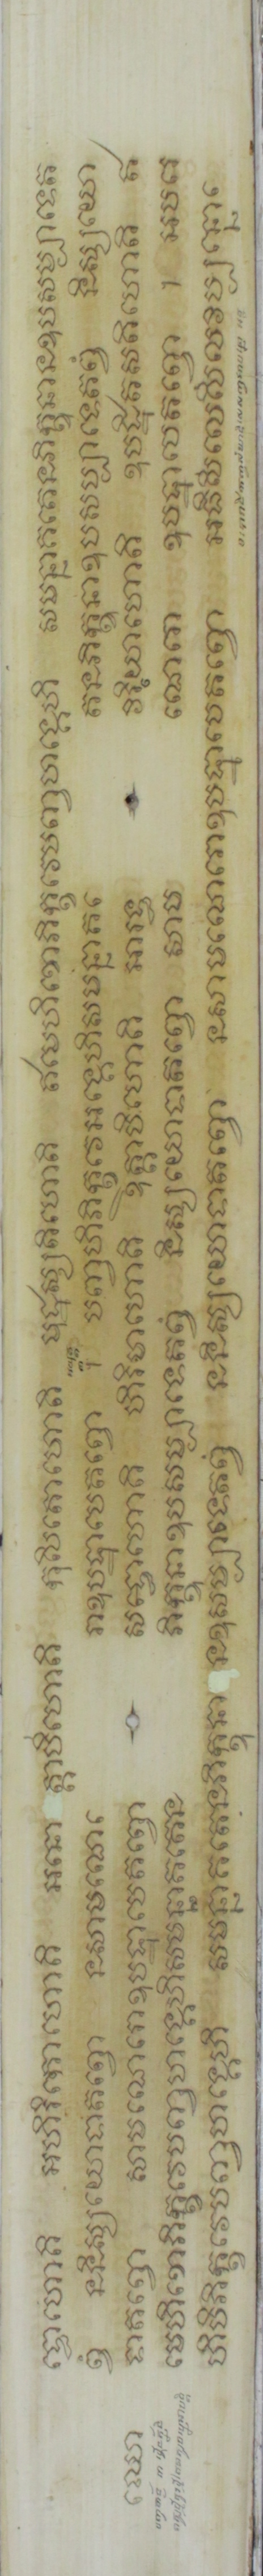 ទ្ធោហោតិ អហិរិកោហោតិ អនោត្តាបីហោតិ កុសិតោហោតិ មុដ្ឋស្សតិហោតិ ឥមេហិខោភិក្ខវេបញ្ចហង្គេហិ សមន្នាគតេនភិក្ខុនានឧបសម្បាទេត
ព្វំ ននិស្សយោទាតព្វោ នសាមណេ រោឧបដ្ឋាបេតព្វោ ។ បញ្ចហិភិក្ខវេអង្គេហិសមន្នាគតេ តេនភិក្ខុនាឧបសម្បាទេតព្វំ និស្សយោ
ឈោ ទាតព្វោ សាមណេរោឧបដ្ឋាបេតព្វោ សទ្ធោហោតិ ហិរិមាហោតិ ឱត្តាបីហោតិ អារទ្ធ វិរិយោហោតិ ឧបដ្ឋិតសតិហោតិ ឥ
មេហិខោភិក្ខវេបញ្ចហង្គេហិសមន្នាគតេន ភិក្ខុនាឧបសម្បាទេតព្វំ និស្សយោទាតព្វោ សាម ណេរោ ឧបដ្ឋាបេតព្វោ ។ អបរេ
ហិបិភិក្ខវេបញ្ចហង្គេហិ សមន្នាគតេនភិក្ខុនា នឧសម្បាទេតព្វំ ននិស្សយោទាតព្វោ នសាមណេរោឧបដ្ឋាបេតព្វោ អធិសីលេសីលវិប្បន្នោ